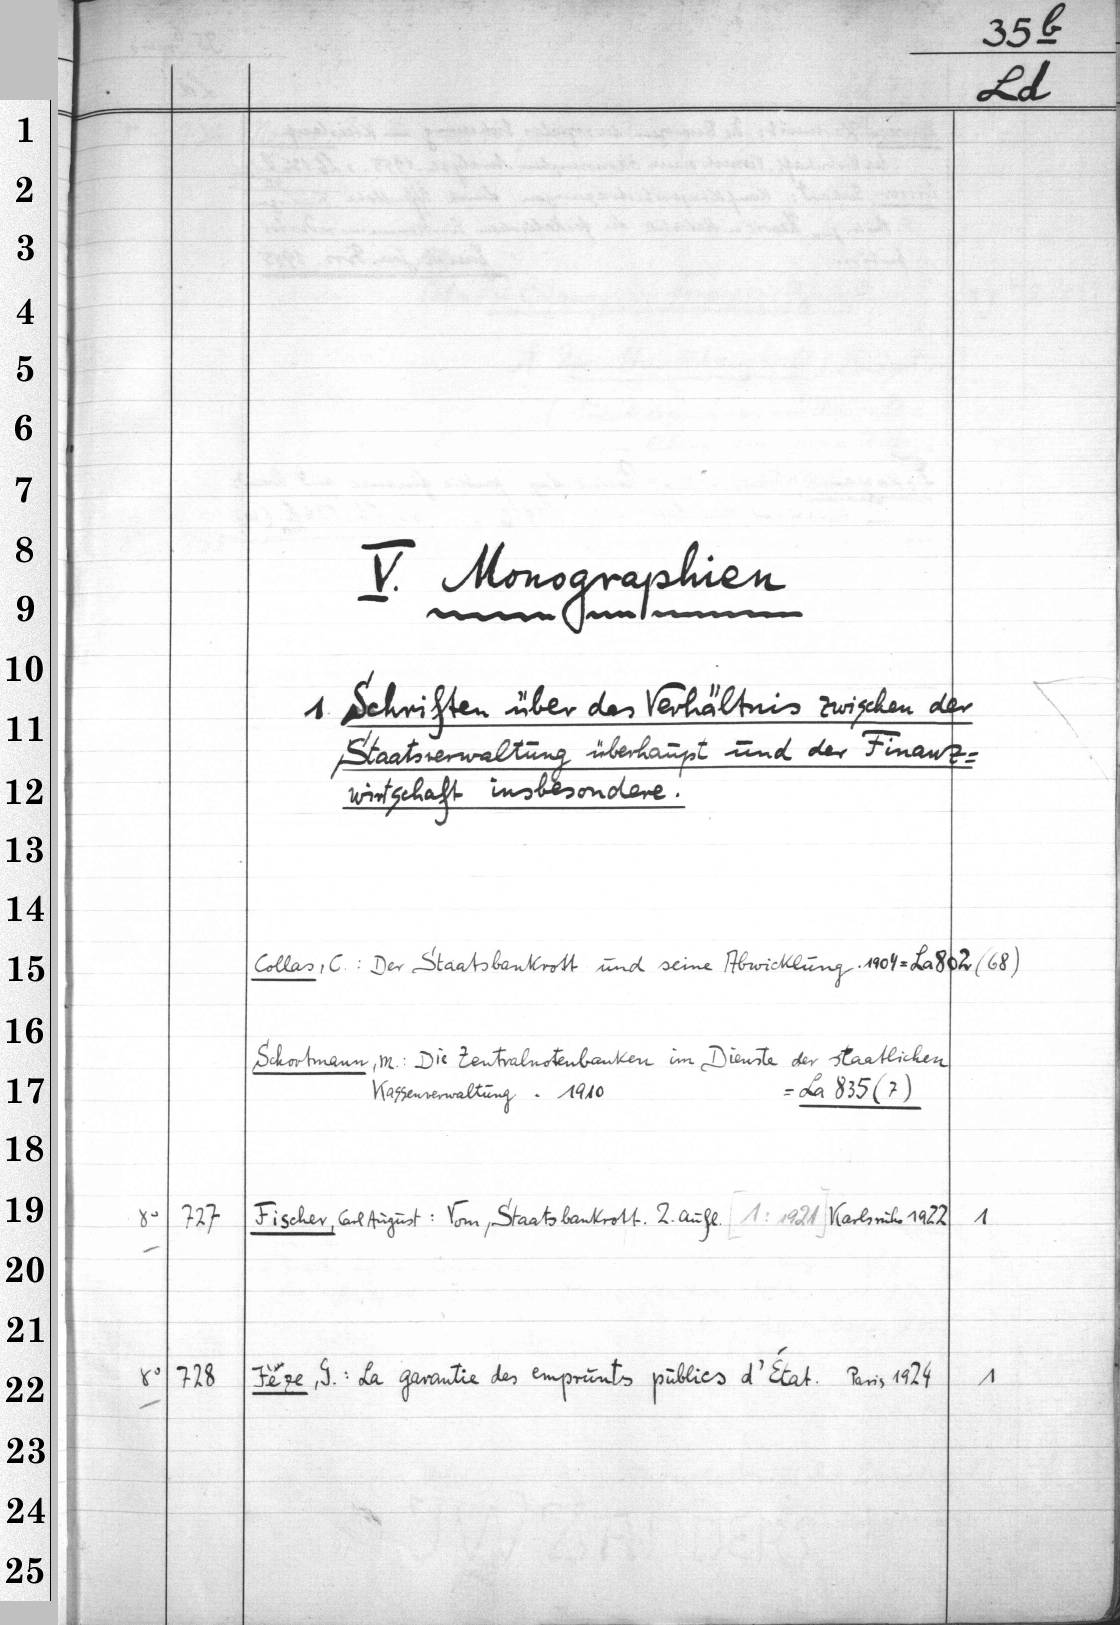 35b
Ld
1
2
3
4
5
6
7
8
V. Monographien
9
10
1. Schriften über das Verhältnis zwischen der
11
Staatsverwaltung überhaupt und der Finanz=
12
wirtschaft insbesondere.
13
14
15 Collas, C.: Der Staatsbankrott und seine Abwicklung. 1904 = La 802 (68)
16
Schortmann, M.: Die Zentralnotenbanken im Dienste der staatlichen
17 Kassenverwaltung. 1910 = La 835 (7)
18
19 8° 727 Fischer, Carl August: Vom Staatsbankrott. 2. Aufl. [1: 1921] Karlsruhe 1922 1
20
21
22 8° 728 Jèze, G.: La garantie des emprunts publics d'État. Paris 1924 1
23
24
25